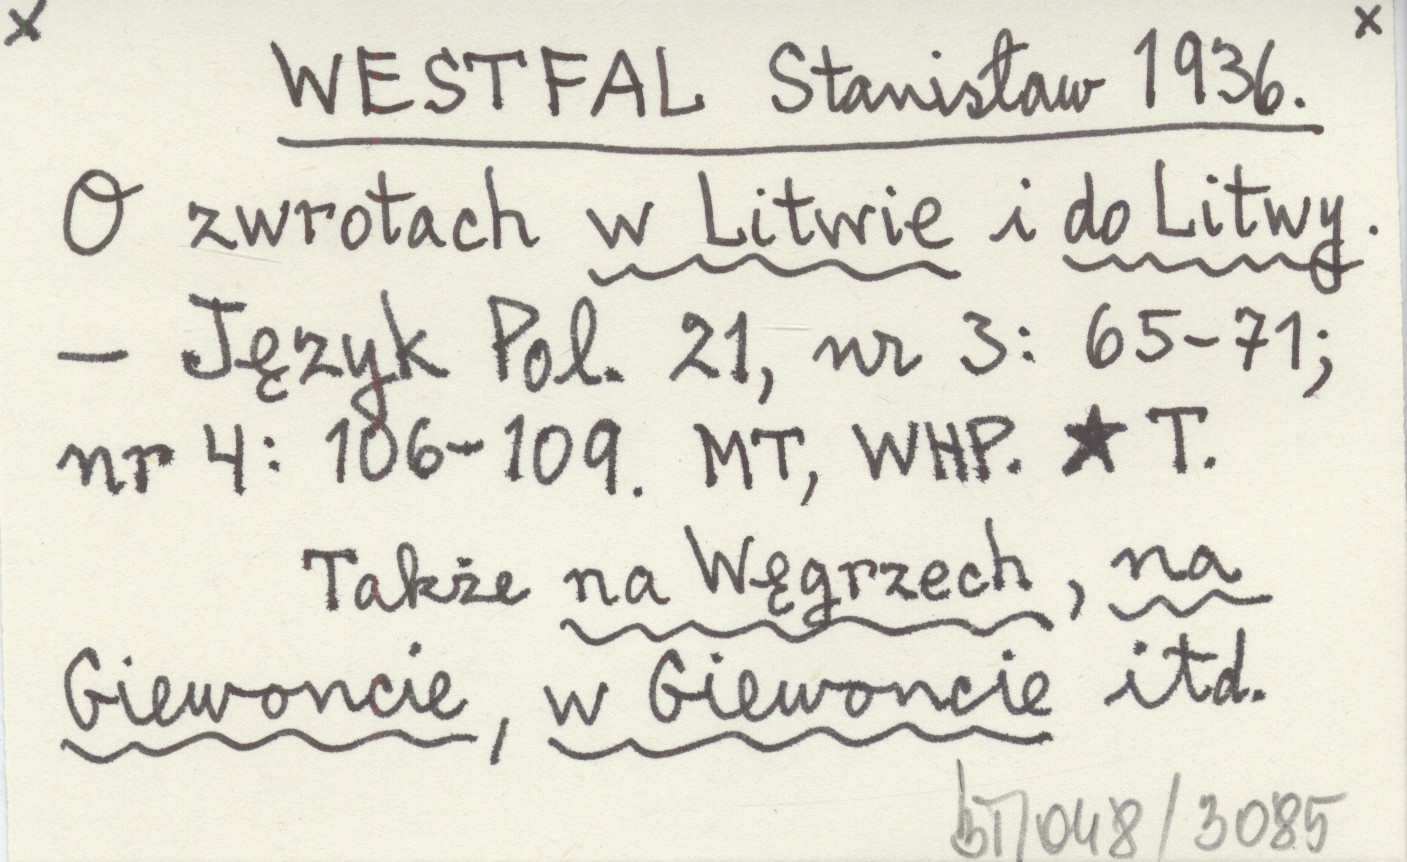 x x
WESTFAL Stanisław 1936.
O zwrotach w Litwie i do Litwy.
– Język Pol. 21, nr 3: 65–71;
nr 4: 106–109. MT, WHP. ★ T.
Także na Węgrzech, na
Giewoncie, w Giewoncie itd.
048/3085